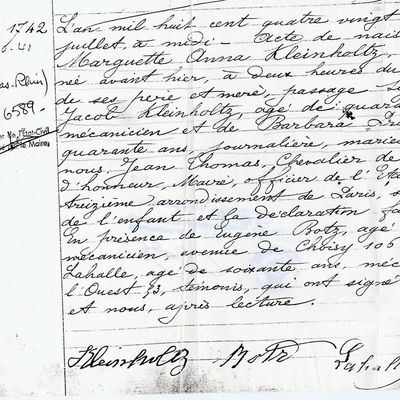 1742
L'an mil huit cent quatre vingt
juillet, à midi - Acte de nais
Marguette Anna Kleinholtz,
née avant hier, à deux heures du
de ses père et mère, passage
Jacob Kleinholtz, âgé de quara
6589
mécanicien et de Barbara
quarante ans, journalière, marie
nous, Jean Thomas, Chevalier de
d'honneur, Maire, officier de l'Eta
treizième arrondissement de Paris, s
de l'enfant et la déclaration fa
En présence de Eugène Botz, agé
mécanicien, avenue de Choisy 106
Lahalle, agé de soixante ans, méc
l'Ouest 93, témoins, qui ont signé
et nous, après lecture.
Kleinholtz Botz Lahall